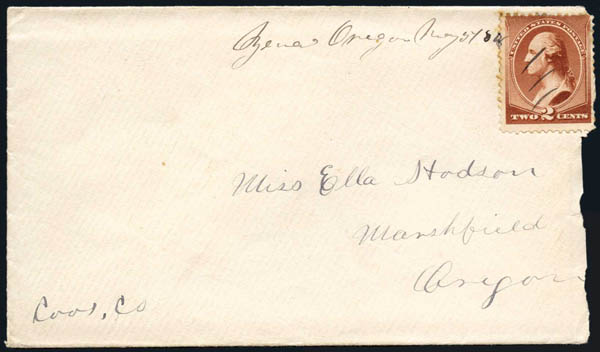 Zena Oregon May 5/84
UNITED STATES POSTAGE
TWO 2 CENTS
Miss Ella Hodson
Marshfield
Oregon
Coos, Co